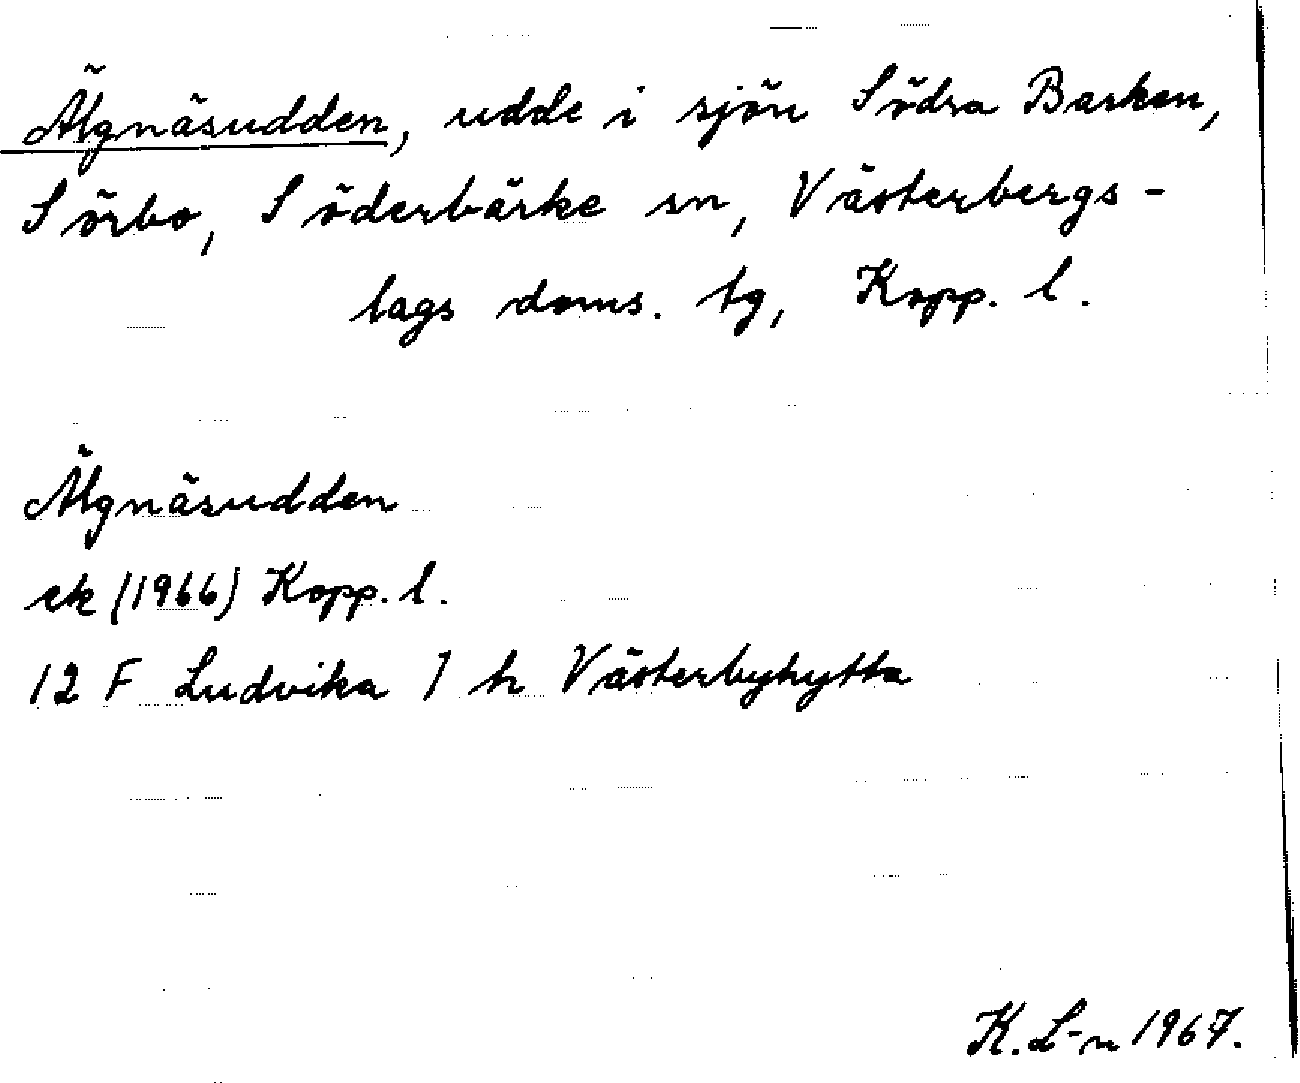 Älgnäsudden, udde i sjön Södra Barken,
Sörbo, Söderbärke sn, Västerbergs-
lags doms. tg, Kopp. l.
Älgnäsudden
ek (1966) Kopp. l.
12 F Ludvika 7 h Västerbyhytta
K. L-n 1967.